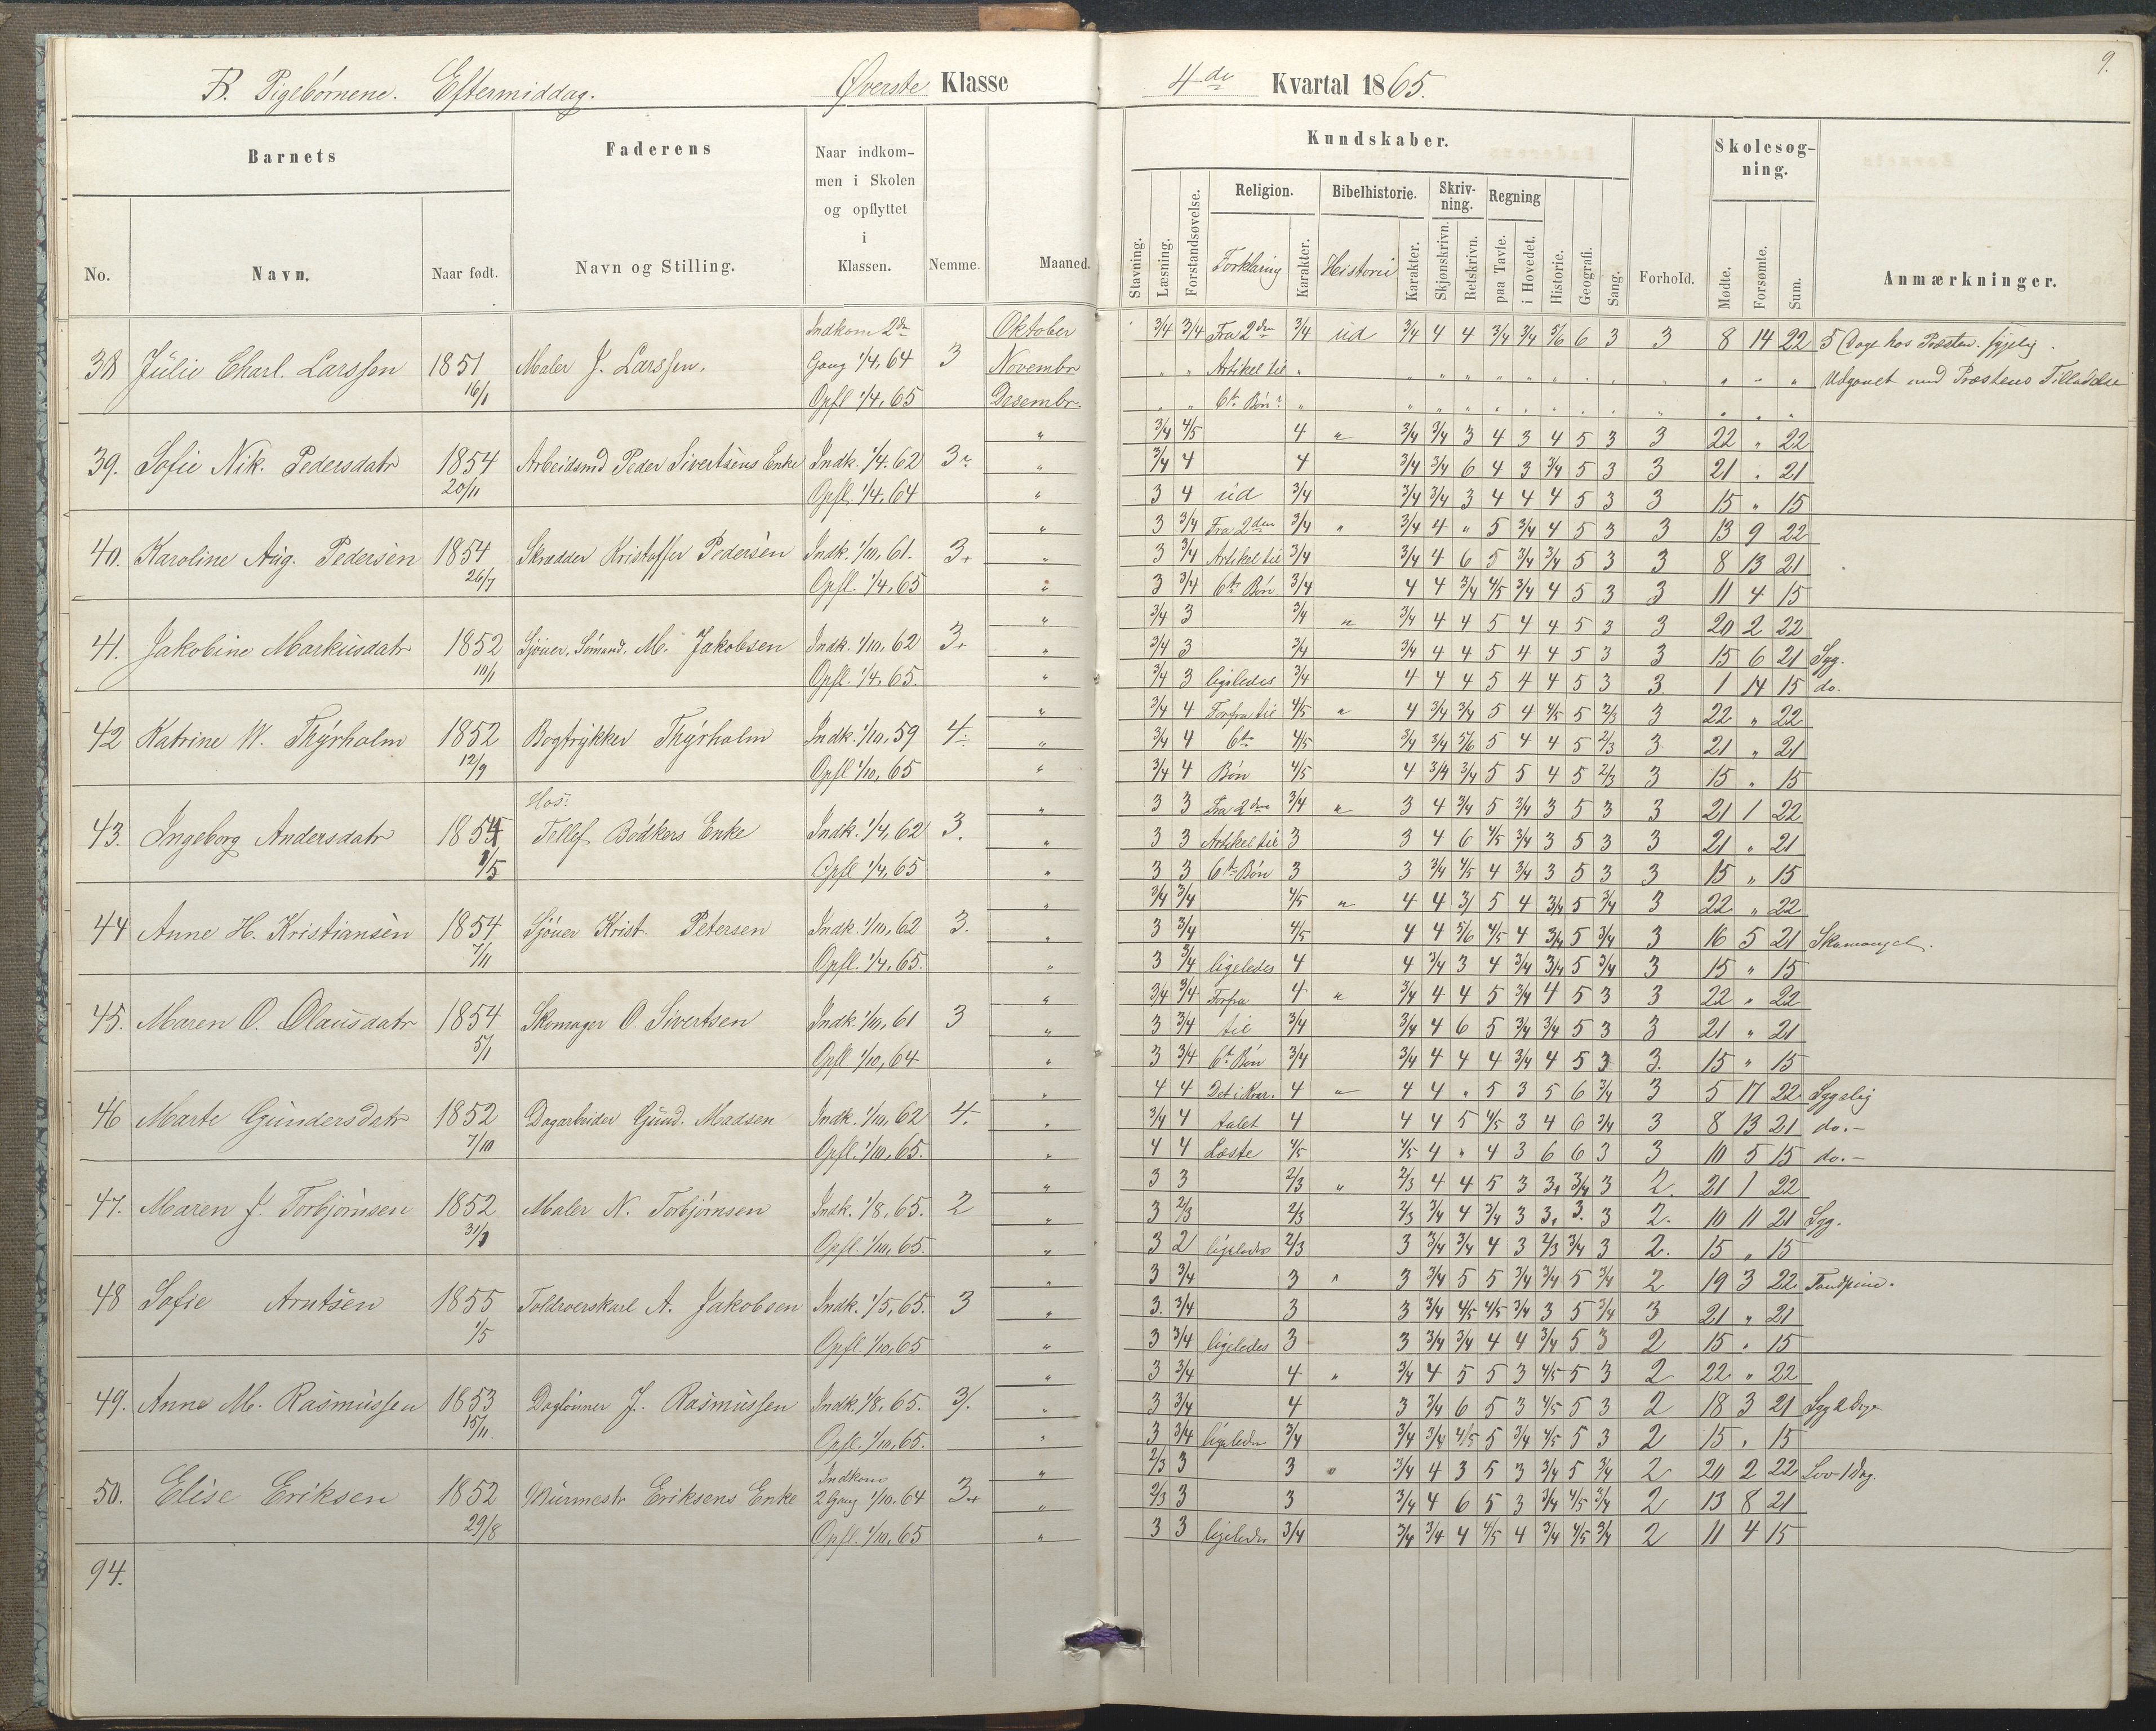 B. Pigebörnene. Eftermiddag. Øverste Klasse
4de Kvartal 1865.
9.
Barnets
Faderens
Naar indkom-
men i Skolen
og opflyttet
i
Klassen.
No.
Navn.
Naar født.
Navn og Stilling.
Nemme.
Maaned.
Kundskaber.
Skolesøg-
ning.
Religion.
Bibelhistorie.
Skriv-
ning.
Regning
Stavning.
Læsning.
Forstandsøvelse.
Forklaring
Karakter.
Historie
Karakter.
Skjønskrivn.
Retskrivn.
paa Tavle.
i Hovedet.
Historie.
Geografi.
Sang.
Forhold.
Mødte.
Forsømte.
Sum.
Anmærkninger.
Indkom 2den Oktober 3/4 3/4 Fra 2den 3/4 ud 3/4 4 4 3/4 3/4 5/6 6 3 3 8 14 22 5 Dage hos Præsten. sygelig.
38 Julie Charl. Larssen 1851 Maler J. Larssen. Gang 1/4, 64 3 Novembr " " Artikel til " " " " " " " " " " " " " Udgaaet med Præstens Tilladelse
16/1 Opfl 1/4, 65 Desembr. " " 6te Bøn " " " " " " " " " " " " "
" 3/4 4/5 4 " 3/4 3/4 3 4 3 4 5 3 3 22 " 22
39. Sofie Nik. Pedersdatr 1854 Arbeidsmd Peder Sivertsens Enke Indk. 1/4. 62 3 " 3/4 4 4 3/4 3/4 6 4 3 3/4 5 3 3 21 " 21
20/11 Opfl. 1/4, 64 " 3 4 ud 3/4 3/4 3/4 3 4 4 4 5 3 3 15 " 15
" 3 3/4 Fra 2den 3/4 " 3/4 4 " 5 3/4 4 5 3 3 13 9 22
40. Karoline Aug. Pedersen 1854 Skrædder Kristoffer Pedersen Indk. 1/10, 61. 3+ " 3 3/4 Artikel til 3/4 3/4 4 6 5 3/4 3/4 5 3 3 8 13 21
26/7 Opfl. 1/4, 65 " 3 3/4 6te Bøn 3/4 4 4 3/4 4/5 3/4 4 5 3 3 11 4 15
" 3/4 3 3/4 " 3/4 4 4 5 4 4 5 3 3 20 2 22
41. Jakobine Markusdatr 1852 Sjouer, Sömand. M. Jakobsen Indk. 1/10, 62 3+ " 3/4 3 3/4 3/4 4 4 5 4 4 5 3 3 15 6 21 Syg.
10/1 Opfl. 1/4. 65. " 3/4 3 ligeledes 3/4 4 4 4 5 4 4 5 3 3 1 14 15 do.
" 3/4 4 Forfra til 4/5 " 4 3/4 3/4 5 4 4/5 5 2/3 3 22 " 22
42 Katrine W. Thÿrholm 1852 Bogtrykker Thÿrholm Indk. 1/10. 59 4 " 3/4 4 6te 4/5 3/4 3/4 5/6 5 4 4 5 2/3 3 21 " 21
12/9 Opfl 1/10, 65 " 3/4 4 Bön 4/5 4 3/4 3/4 5 5 4 5 2/3 3 15 " 15
Hos: " 3 3 Fra 2den 3/4 " 3 4 3/4 5 3/4 3 5 3 3 21 1 22
43. Ingeborg Andersdatr 1854 Tellef Bödkers Enke Indk. 1/4, 62 3. " 3 3 Artikel til 3 3 4 6 4/5 3/4 3 5 3 3 21 " 21
1/5 Opfl 1/4, 65 " 3 3 6te Bön 3 3 3/4 4/5 4 3/4 3 5 3 3 15 " 15
" 3/4 3/4 4/5 " 4 4 3/ 5 4 3/4 5 3/4 3 22 " 22
44 Anne H. Kristiansen 1854 Sjouer Krist. Petersen Indk. 1/10, 62 3. " 3 3/4 4/5 4 4 5/6 4/5 4 3/4 5 3/4 3 16 5 21 Skomangel.
7/11 Opfl. 1/4, 65. " 3 3/4 ligeledes 4 4 3/4 3 4 3/4 3/4 5 3/4 3 15 " 15
" 3/4 3/4 Forfra 4 " 3/4 4 4 5 3/4 4 5 3 3 22 " 22
45. Maren O. Olausdatr 1854 Skomager O. Sivertsen Indk. 1/10, 61 3 " 3 3/4 til 3/4 3/4 4 6 5 3/4 3/4 5 3 3 21 " 21
5/1 Opfl 1/10, 64 " 3 3/4 6te Bön 3/4 3/4 4 4 4 3/4 4 5 3 3. 15 " 15
" 4 4 Det i Kvar. 4 " 4 4 " 5 3 5 6 3/4 3 5 17 22 Sygelig
46 Marte Gundersdatr 1852 Dagarbeider Gund. Madsen Indk. 1/10, 62 4. " 3/4 4 talet 4 4 4 5 4/5 3 4 6 3/4 3 8 13 21 do.-
7/10 Opfl. 1/10, 65. " 4 4 Læste 4/5 4/5 4 " 4 3 6 6 3 3 10 5 15 do.-
" 3 3 2/3 " 2/3 4 4 5 3 3+ 3/4 3 2. 21 1 22
47. Maren J. Torbjörnsen 1852 Maler N. Torbjörnsen Indk. 1/8, 65. 2 " 3 2/3 2/3 2/3 3/4 4 3/4 3 3+ 3. 3 2. 10 11 21 Syg.
31/1 Opfl. 1/10, 65. " 3 2 ligeledes 2/3 3 3/4 3/4 4 3 2/3 3/4 3 2. 15 " 15
" 3 3/4 3 " 3 3/4 5 5 3/4 3/4 5 3/4 2 19 3 22 Tandpine.
48 Sofie Arntsen 1855 Toldroerskarl A. Jakobsen Indk. 1/5, 65. 3 " 3. 3/4 3 3 3/4 4/5 4/5 3/4 3 5 3/4 3 21 " 21
1/5 Opfl 1/10, 65 " 3 3/4 ligeledes 3 3 3/4 3/4 4 4 3/4 5 3 2 15 " 15
" 3 3/4 4 " 3/4 4 5 5 3 4/5 5 3 2 22 " 22
49. Anne M. Rasmussen 1853 Daglönner J. Rasmussen Indk. 1/8, 65. 3/. " 3 3/4 4 3 3/4 6 5 3 4/5 5 3 2 18 3 21 Syg 2 Dage
15/11. Opfl. 1/10, 65. " 3 3/4 ligeledes 3/4 3/4 3/4 4/5 5 3/4 4/5 5 3 2 15 " 15
Indkom " 2/3 3 3 " 3/4 4 3 5 3 3/4 5 3/4 2 20 2 22 Lov 1 Dag.
50. Elise Eriksen 1852 Murmestr Eriksens Enke 2 Gang 1/10. 64 3+ " 2/3 3 3 3/4 4 6 5 3 3/4 4/5 3/4 2 13 8 21
29/8 Opfl. 1/10, 65 " 3 3 ligeledes 3/4 3/4 3/4 4 4/5 4 3/4 4/5 3/4 2 11 4 15
94.